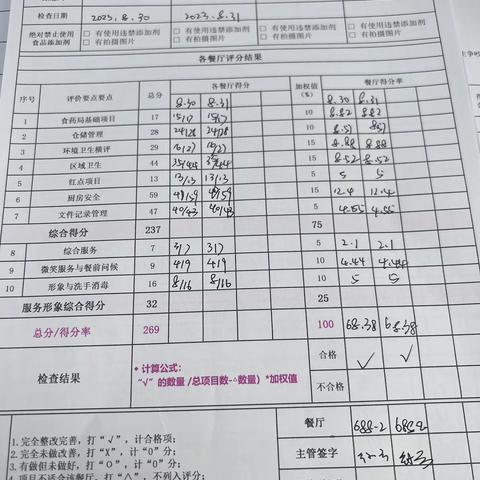 检查日期 2023.8.30 2023.8.31
绝对禁止使用食品添加剂 □ 有使用违禁添加剂 □ 有使用违禁添加剂 □ 有使用违禁添加剂 □ 有使用违禁添加剂
□ 有拍摄图片 □ 有拍摄图片 □ 有拍摄图片 □ 有拍摄图片
各餐厅评分结果
序号 评价要点要点 总分 各餐厅得分 加权值(%) 餐厅得分率
8.30 8.31 8.30 8.31
1 食药局基础项目 17 15/17 15/17 10 8.82 8.82
2 仓储管理 28 24/28 24/28 10 8.57 8.57
3 环境卫生横评 29 15 8.88 8.88
4 区域卫生 44 10 8.52 8.52
5 红点项目 13 13/13 13/13 5 5 5
6 厨房安全 59 49/59 49/59 15 12.4 12.4
7 文件记录管理 47 40/43 40/43 5 4.55 4.55
综合得分 237 75
8 综合服务 7 3/7 3/7 5 2.1 2.1
9 微笑服务与餐前问候 9 4/9 4/9 10 4.44 4.44
10 形象与洗手消毒 16 8/16 8/16 10 5 5
服务形象综合得分 32 25
总分/得分率 269 100 68.38 68.38
检查结果
* 计算公式:
“√”的数量 /总项目数-△数量）*加权值
合格 √ √
不合格
餐厅 688-2 685-2
主管签字
1.完全整改完善，打“√”，计合格项；
2.完全未做改善，打“X”，计“0”分；
3.有做但未做好，打“O”，计“0”分；
4.项目不适合该餐厅，打“△”，不列入评分；